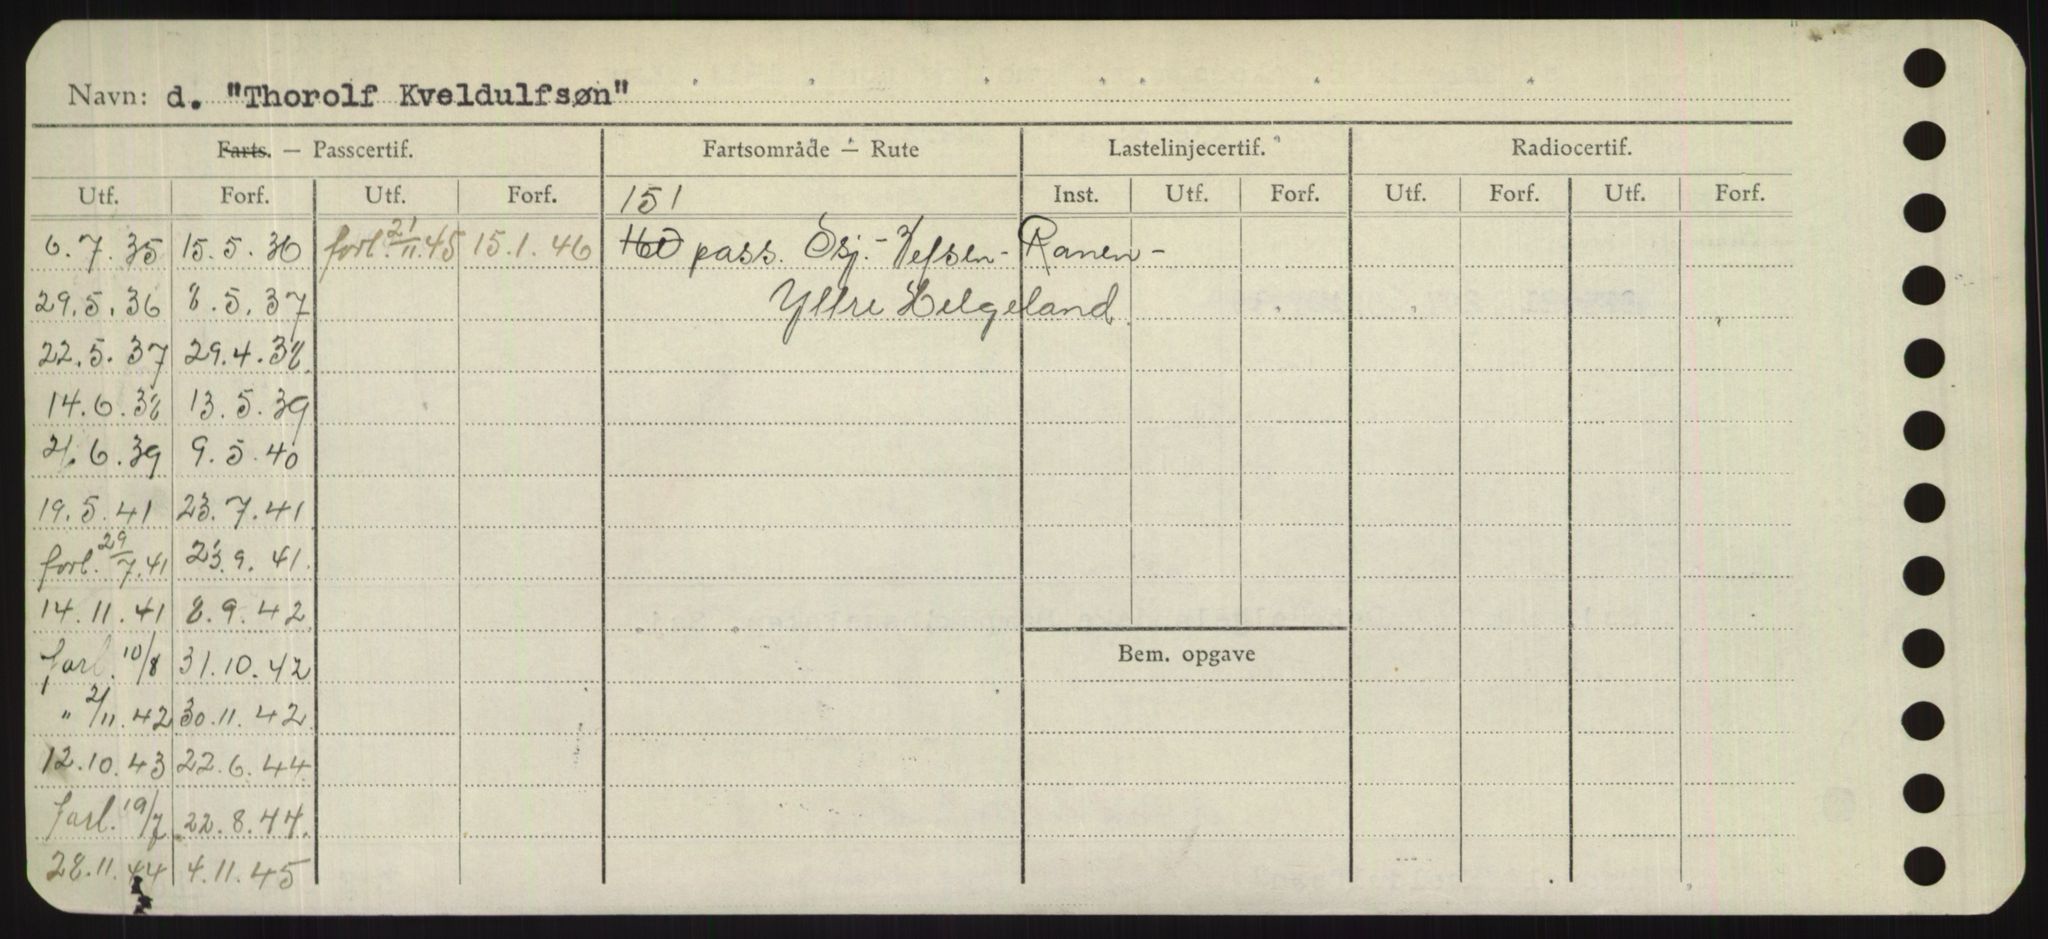 Navn: d. "Thorolf Kveldulfsøn"
Farts. — Passcertif. Fartsområde — Rute Lastelinjecertif. Radiocertif.
Utf. Forf. Utf. Forf. 151 Inst. Utf. Forf. Utf. Forf. Utf. Forf.
6.7.35 15.5.36 forl. 21/11.45 15.1.46 160 pass. Ssj.-Vefsen-Ranen-
29.5.36 8.5.37 Yttre Helgeland
22.5.37 29.4.38
14.6.38 13.5.39
21.6.39 9.5.40
19.5.41 23.7.41
forl. 29/7.41 23.9.41.
14.11.41 8.9.42
forl. 10/8 31.10.42
Bem. opgave
" 2/11.42 30.11.42
12.10.43 22.6.44
forl. 19/7 22.8.44.
28.11.44 4.11.45